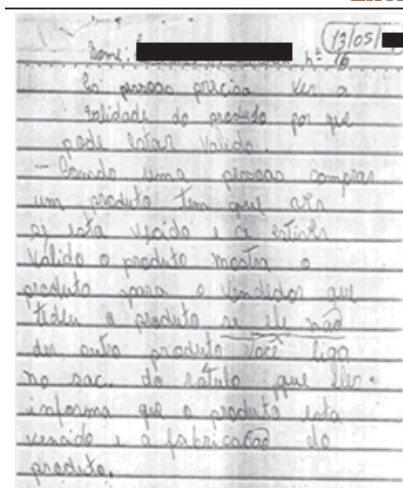 13/05/
Nome: nº 16
Es pessoas precisa ver a
validade do produto por que
pode estar valido.
– Cuando uma pessoas comprar
um produto tem que vir
se esta vencido e ce estiver
valido o produto mostra o
produto para o vendedor que
tideu o produto se ele não
der outro produto você liga
no sac. do rótulo que
informa que o produto esta
vencido e a fabricação do
produto.